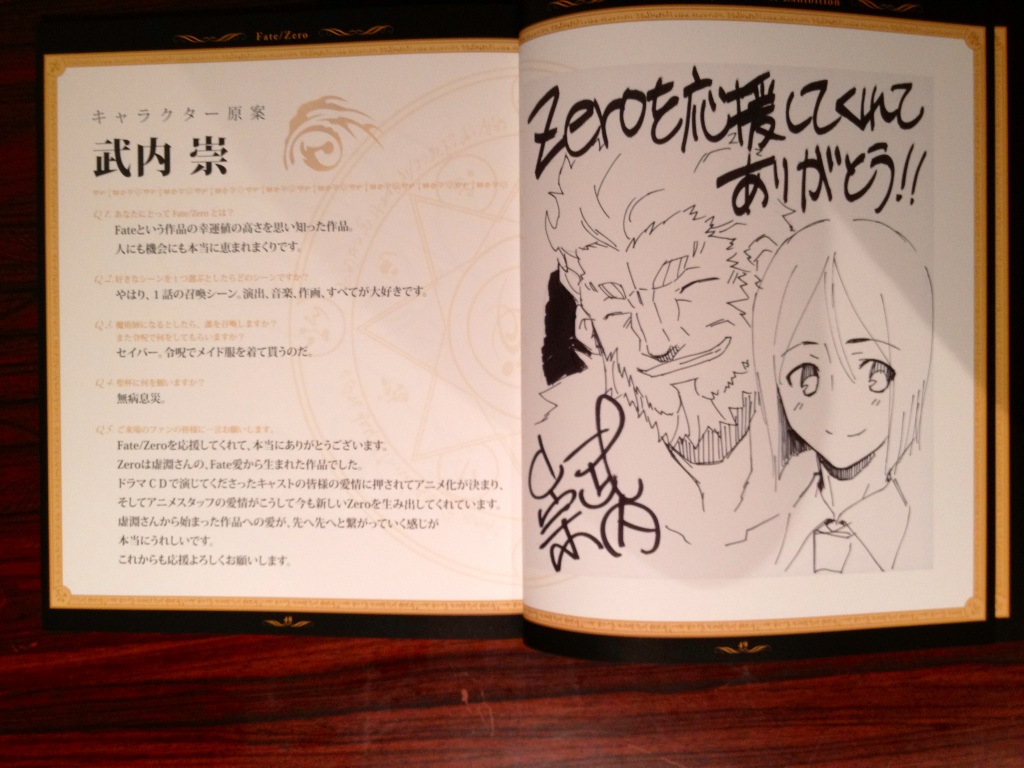 Fate/Zero
キャラクター原案
武内 崇
Q1. あなたにとってFate/Zeroとは？
Fateという作品の幸運値の高さを思い知った作品。
人にも機会にも本当に恵まれまくりです。
Q2. 好きなシーンを1つ選ぶとしたらどのシーンですか？
やはり、1話の召喚シーン。演出、音楽、作画、すべてが大好きです。
Q3. 魔術師になるとしたら、誰を召喚しますか？
また令呪で何をしてもらいますか？
セイバー。令呪でメイド服を着て貰うのだ。
Q4. 聖杯に何を願いますか？
無病息災。
Q5. ご来場のファンの皆様に一言お願いします。
Fate/Zeroを応援してくれて、本当にありがとうございます。
Zeroは虚淵さんの、Fate愛から生まれた作品でした。
ドラマCDで演じてくださったキャストの皆様の愛情に押されてアニメ化が決まり、
そしてアニメスタッフの愛情がこうして今も新しいZeroを生み出してくれています。
虚淵さんから始まった作品への愛が、先へ先へと繋がっていく感じが
本当にうれしいです。
これからも応援よろしくお願いします。
Zeroを応援してくれて
ありがとう!!
武内
崇